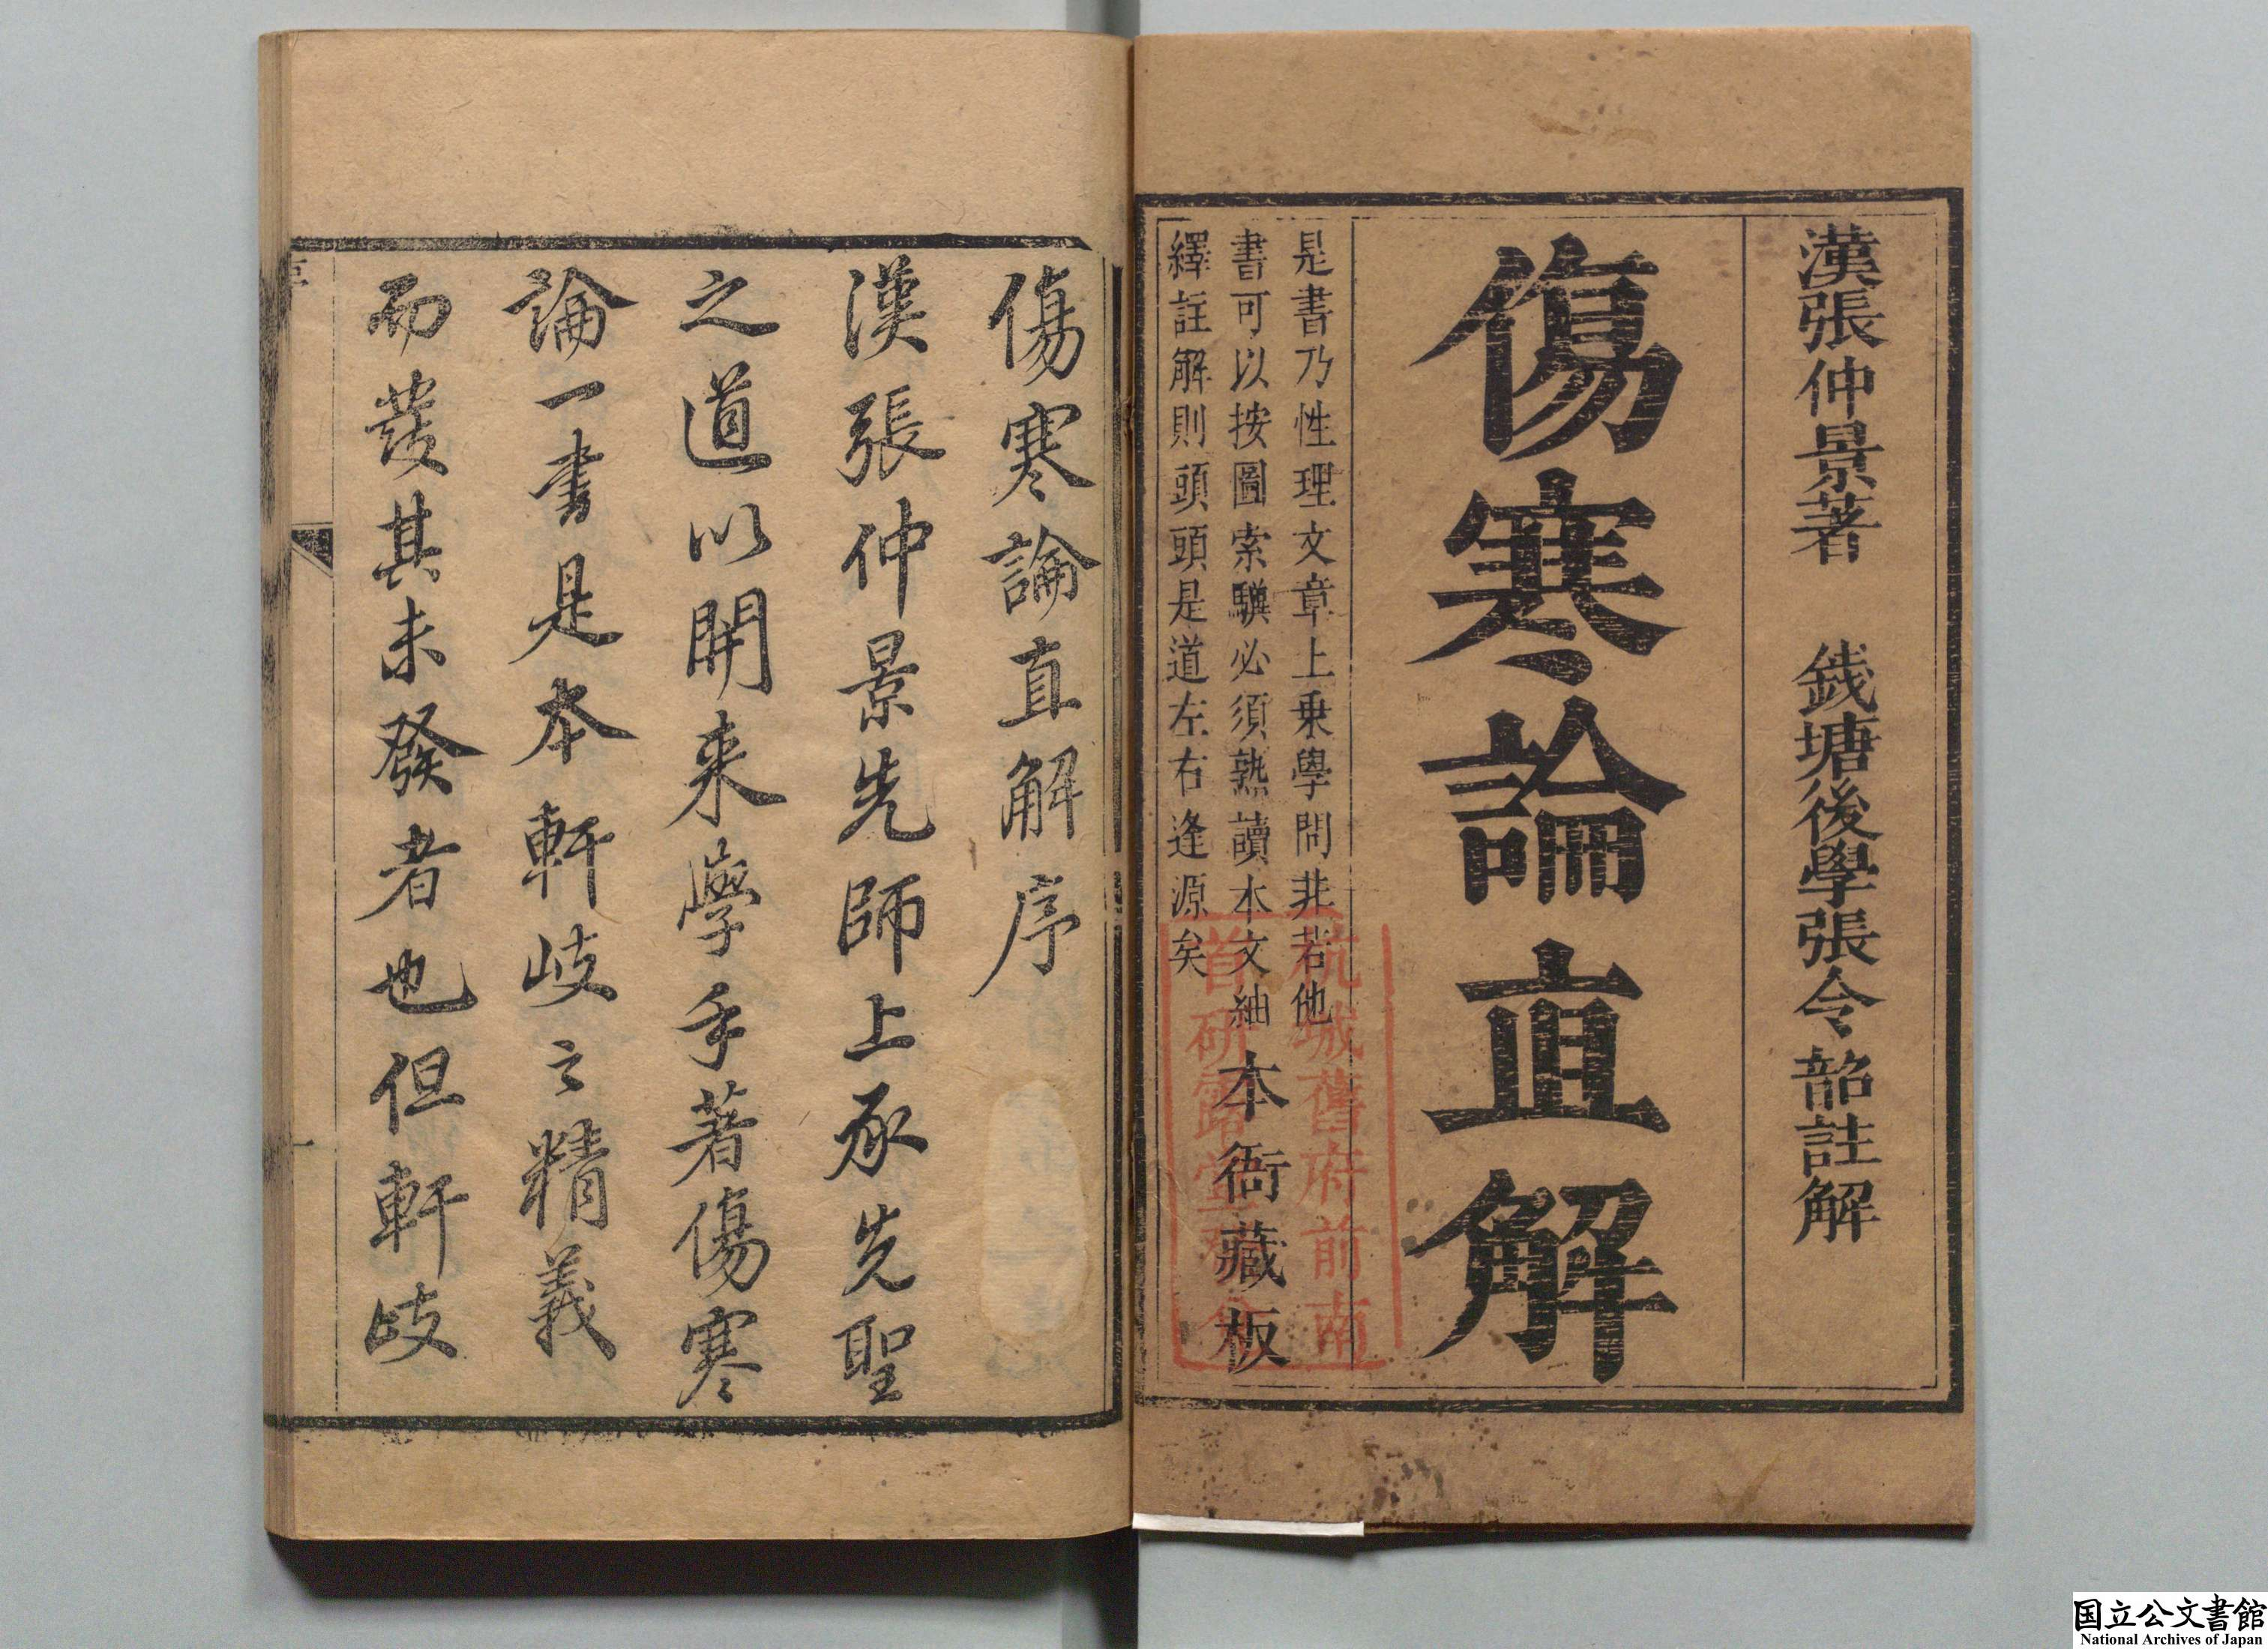 漢張仲景著 錢塘後學張令韶註解
傷寒論直解
是書乃性理文章上乗學問非若他
書可以按圖索驥必須熟讀本文紬
繹註解則頭頭是道左右逢源矣
本衙藏板
杭城舊府前南
首研露堂發
傷寒論直解序
漢張仲景先師上承先聖
之道以開来學手著傷寒
論一書是本軒岐之精義
而發其未發者也但軒岐
国立公文書館
National Archives of Japan